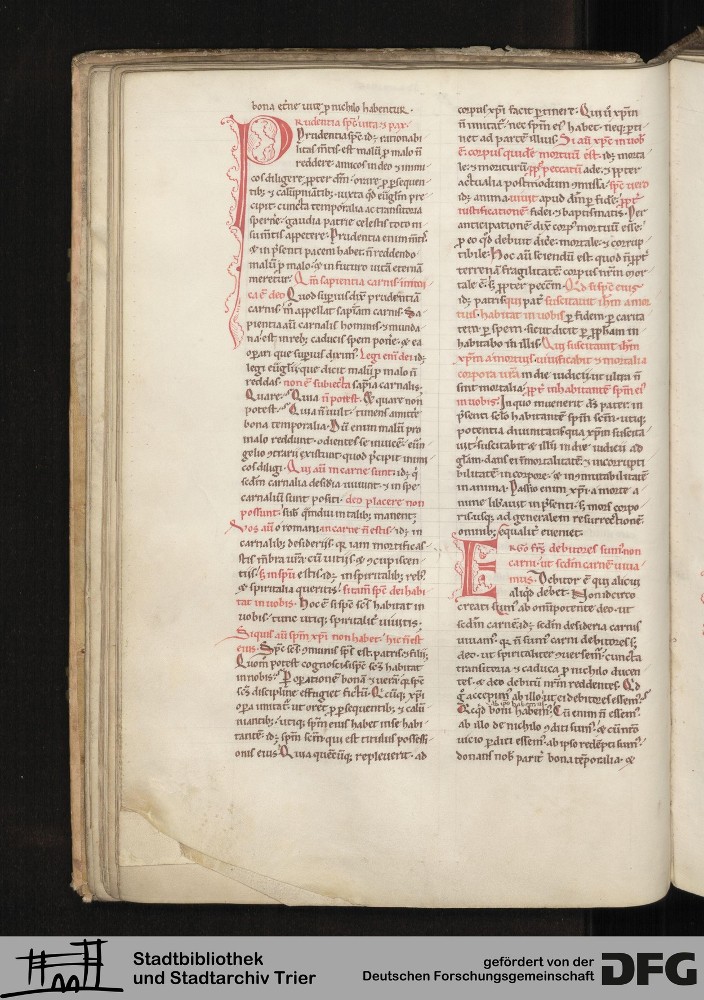 bona etne uite p nichilo habentur.
Prudentia sps uita & pax.
Prudentia sps id; rationabi
litas mtis est malu p malo n
reddere. amicos in deo & inimi
cos diligere. ppter dm. orare p psequen
tib; & calupniatib; iuxta qd euglm pre
cipit. cuncta temporalia ac transitoria
sperne. gaudia patrie celestis toto ni
su mtis appetere. Prudentia enim
& in psenti pacem habet. n reddendo
malu p malo. & in futuro uita eterna
meretur. Qm sapientia carnis inimi
ca e deo. Quod supius dix prudentia
carnis. m appellat sapiam carnis. Sa
pientia au carnalis hominis & munda
na. est in reb; caducis spem ponere. & ea
opari que supius diximus. Legi eni dei id;
legi euglii. que dicit malu p malo n
reddas. non e subiecta sapia carnalis.
Quare? Quia n potest. & quare non
potest? Quia n uult. timens amitte
bona temporalia. Du enim malu pro
malo reddunt. odientes se inuice. euan
gelio contrarii existunt. quod pcipit inimi
cos diligi. Qui au in carne sunt. id; q
sedm carnalia desideria uiuunt. & in spe
carnaliu sunt positi. deo placere non
possunt. subs quamdiu in talib; manent.
Vos au o romani in carne n estis. id; in
carnalib; desideriis. qr iam mortificas
tis mbra ura. cu uitiis & concupiscen
tiis. s; in spu estis. id; in spiritalib; reb;
& spiritalia queritis. si tam sps dei habi
tat in uobis. Hoc e si sps ses habitat in
uobis. tunc utiq; spiritalit uiuitis.
Siquis au spm xpi non habet. hic n est
eius. Sps ses comunis sps est. patris & filii.
Quom potest cognosci si sps ses habitat
in nobis? P operatione bona & uera. qr sps
ses discipline effugiet fictu. Quicuq; xpi
opa imitat. ut oret p psequentib; & calu
niantib; utiq; spm eius habet in se habi
tante. id; spm scm. qui est titulus possessi
onis eius. Quia quecuq; repleuerit. ad
corpus xpi facit ptinere. Qui u xpm
n imitat. nec spm eius habet. neq; pti
net ad parte illius. Si au xpc in uob
e. corpus quide mortuu est. id; morta
le. & morituru. ppt peccatu ade. & ppter
actualia postmodum comissa. sps uero
id; anima. uiuit apud dm p fide. ppt
iustificatione fidei & baptismatis. Per
anticipatione dix corpus mortuu esse.
p eo qd debuit dice. mortale. & corrup
tibile. Hoc au sciendu est. quod n ppt
terrena fragilitate corpus nrm mor
tale e. s; ppter peccm. Qd si sps eius
id; patris. qui pat suscitauit ihm a mor
tuis. habitat in uobis. p fidem. p carita
tem. p spem. sicut dicit p ppham in
habitabo in illis. Qui suscitauit ihm
xpm a mortuis. uiuificabit & mortalia
corpora ura in die iudicii. ut ultra n
sint mortalia. ppt inhabitante spm eius
in uobis. In quo inuenerit ds pater. in
psenti sclo habitante spm scm. utiq;
potentia diuinitatis qua xpm suscita
uit. suscitabit & illu in die iudicii ad
gliam. dans ei immortalitate. & incorrupti
bilitate in corpore. & immutabilitate
in anima. Passio enim xpi a morte a
nime liberauit in psenti. s; mors corpo
ris usq; ad generalem resurrectione.
omnib; equalit euenit.
Ergo frs debitores sumus non
carni. ut sedm carne uiua
mus. Debitor e qui alicui
aliqd debet. Non idcirco
creati sumus ab omnipotente deo. ut
sedm carne. id; sedm desideria carnis
uiuam. qr n sumus carni debitores. s;
deo. ut spiritaliter conuersem. cuncta
transitoria & caduca p nichilo ducen
tes. & deo debitu nrm reddentes. Qd
accepimus ab illo. ut ei debitores essem?
Quicqd boni habem. Cu enim n essem.
ab illo de nichilo conditi sumus. & cu nro
uicio pditi essem. ab ipso redepti sumus.
donans nob parit bona teporalia. &
Stadtbibliothek
und Stadtarchiv Trier
gefördert von der
Deutschen Forschungsgemeinschaft
DFG